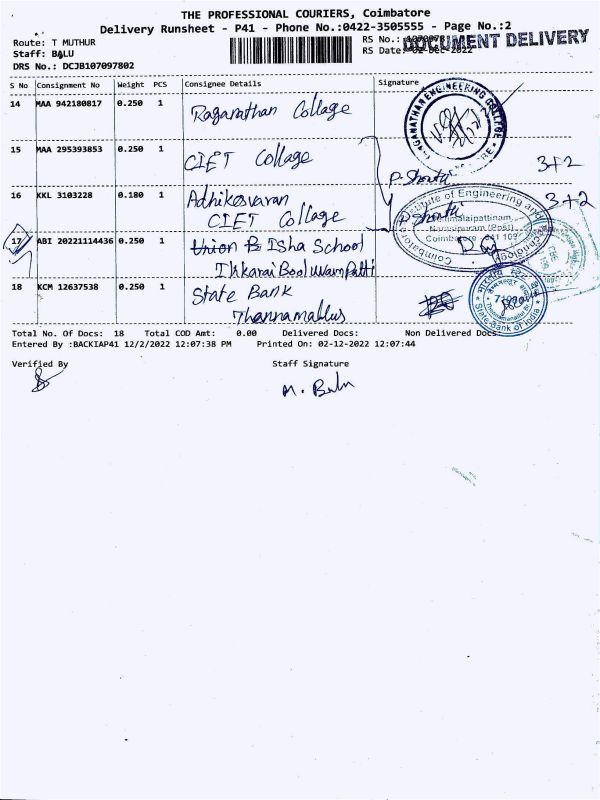 THE PROFESSIONAL COURIERS, Coimbatore
Delivery Runsheet - P41 - Phone No.:0422-3505555 - Page No.:2
Route: T MUTHUR
RS No.:
DOCUMENT DELIVERY
Staff: BALU
RS Date: 02-Dec-2022
DRS No.: DCJB107097802
S No Consignment No Weight PCS Consignee Details Signature
14 MAA 942180817 0.250 1 Raganathan Collage
15 MAA 295393853 0.250 1 CIET Collage
3+2
16 KKL 3103228 0.180 1 Adhikesvaran
CIET Collage
3+2
17 ABI 20221114436 0.250 1 Union B Isha School
Ikkarai Booluvampatti
18 KCM 12637538 0.250 1 State Bank
State Bank of India
Total No. Of Docs: 18 Total COD Amt: 0.00 Delivered Docs: Non Delivered Docs:
Entered By :BACKIAP41 12/2/2022 12:07:38 PM Printed On: 02-12-2022 12:07:44
Verified By Staff Signature
M. Balu